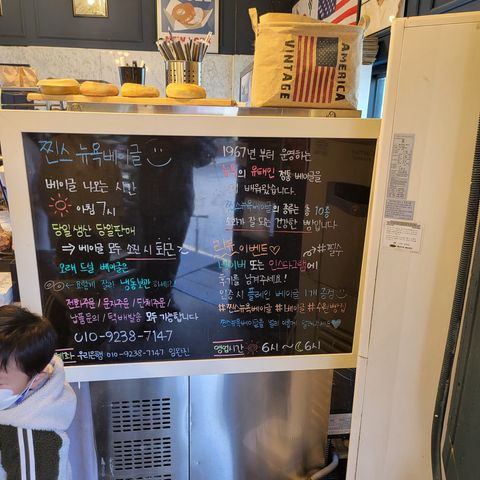 AMERICA
VINTAGE
찐스 뉴욕베이글
베이글 나오는 시간
아침 7시
당일생산 당일판매
⇒ 베이글 모두 소진 시
오래 드실 베이글은
냉동보관 하세요!
전화주문 / 문자주문 / 단체주문 /
납품문의 / 택배발송 모두 가능합니다
010-9238-7147
우리은행 010-9238-7147
1967년 부터 운영하는
뉴욕의 유태인 정통 베이글을
배워왔습니다.
찐스뉴욕베이글의 종류는 총 10종
소화가 잘 되는 건강한 빵 입니다
리뷰 이벤트♡ #필수
네이버 또는 인스타그램에
후기를 남겨주세요!
인증 시 플레인 베이글 1개 증정
#찐스뉴욕베이글 #베이글
영업시간 6시~6시